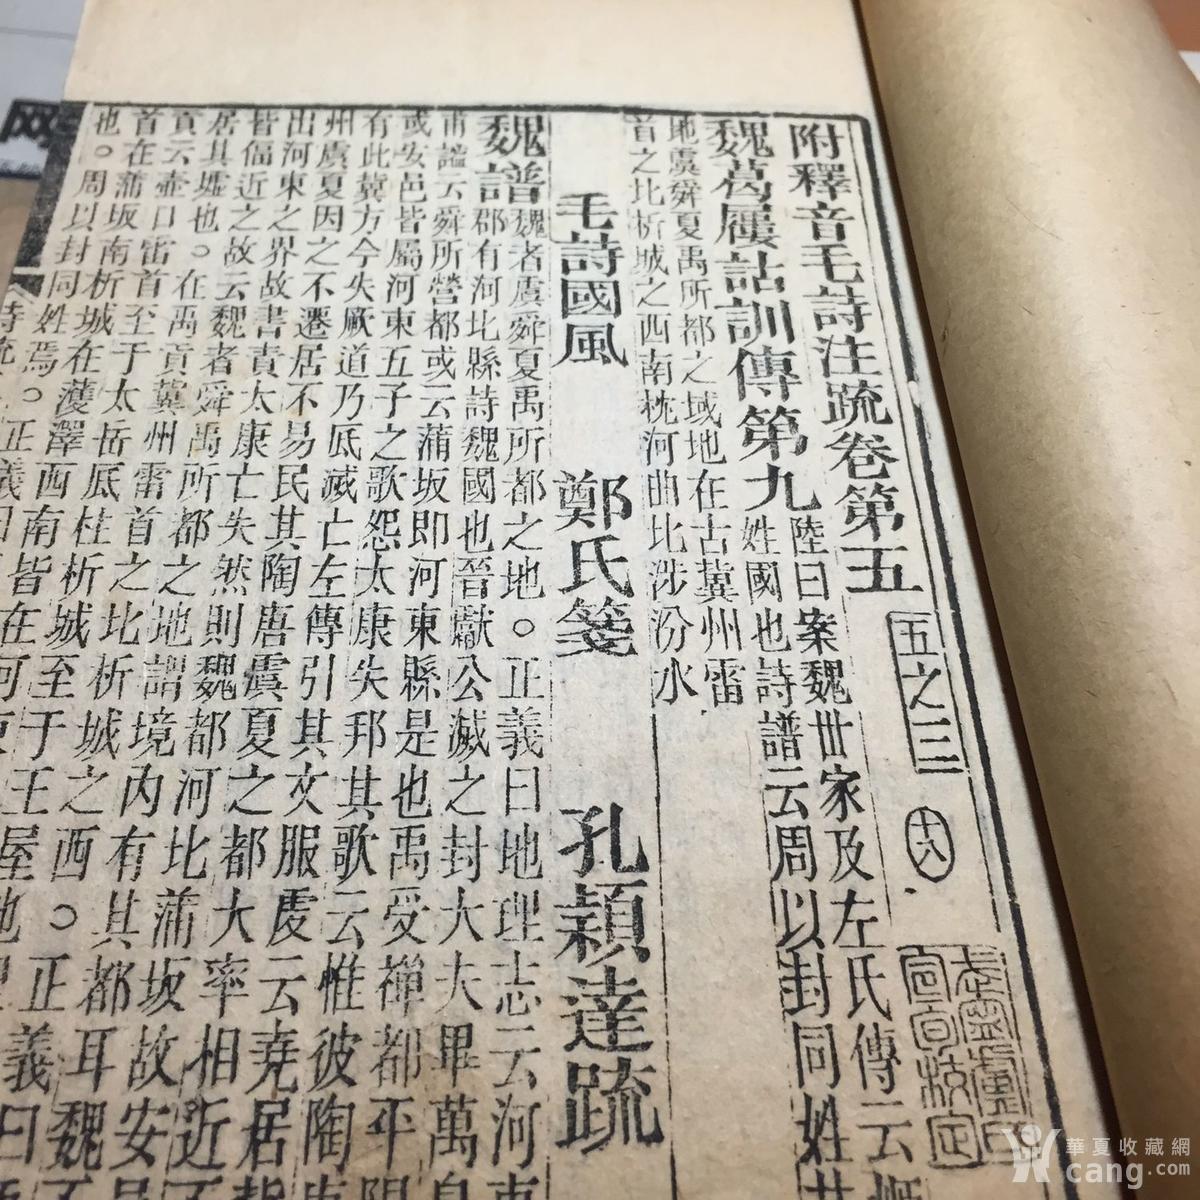 附釋音毛詩注疏卷第五 五之三 十八
魏葛屨詁訓傳第九 陸曰案魏世家及左氏傳云
姓國也詩譜云周以封同姓其
地虞舜夏禹所都之域地在古冀州雷
首之北析城之西南枕河曲北涉汾水
毛詩國風 鄭氏箋 孔穎達疏
魏譜 魏者虞舜夏禹所都之地○正義曰地理志云河東
郡有河北縣詩魏國也晉獻公滅之封大夫畢萬
甫謐云舜所營都或云蒲坂即河東縣是也禹受禪都平陽
或安邑皆屬河東五子之歌怨太康失邦其歌云惟彼陶
有此冀方今失厥道乃厎滅亡左傳引其文服虔云堯居
州虞夏因之不遷居不易民其陶唐虞夏之都大率相近
出河東之界故書責太康亡失然則魏都河北蒲坂故安
皆偪近之故云魏者舜禹所都之地謂境內有其都耳魏
居其墟也○在禹貢冀州雷首之北析城之西○正義曰
貢云壺口雷首至于太岳厎柱析城至于王屋
首在蒲坂南析城在濩澤西南皆在河東
也○周以封同姓焉○正義曰
華夏收藏網
cang.com